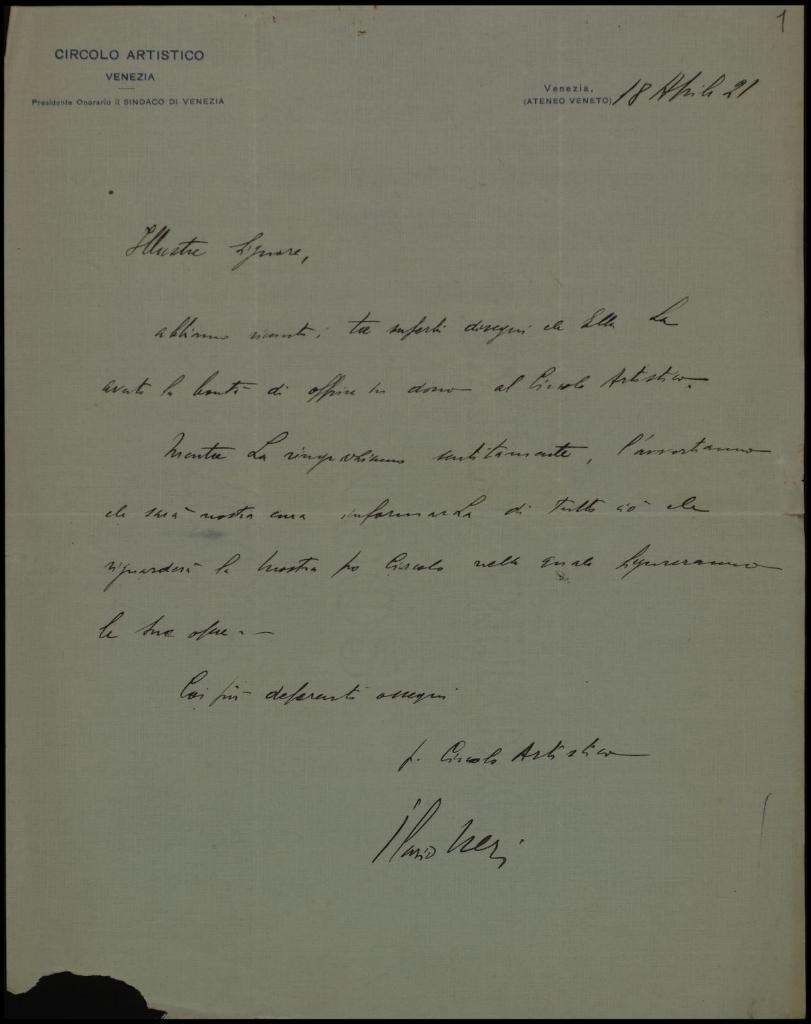 1
CIRCOLO ARTISTICO
VENEZIA
Presidente Onorario il SINDACO DI VENEZIA
Venezia,
(ATENEO VENETO) 18 Aprile 21
Illustre Signore,
abbiamo ricevuti i tre superbi disegni che Ella ha
avuto la bontà di offrire in dono al Circolo Artistico.
Mentre La ringraziamo sentitamente, l'avvertiamo
che sarà nostra cura informarLa di tutto ciò che
riguarderà la Mostra pro Circolo nella quale figureranno
le Sue opere. —
Coi più deferenti ossequi
p. Circolo Artistico